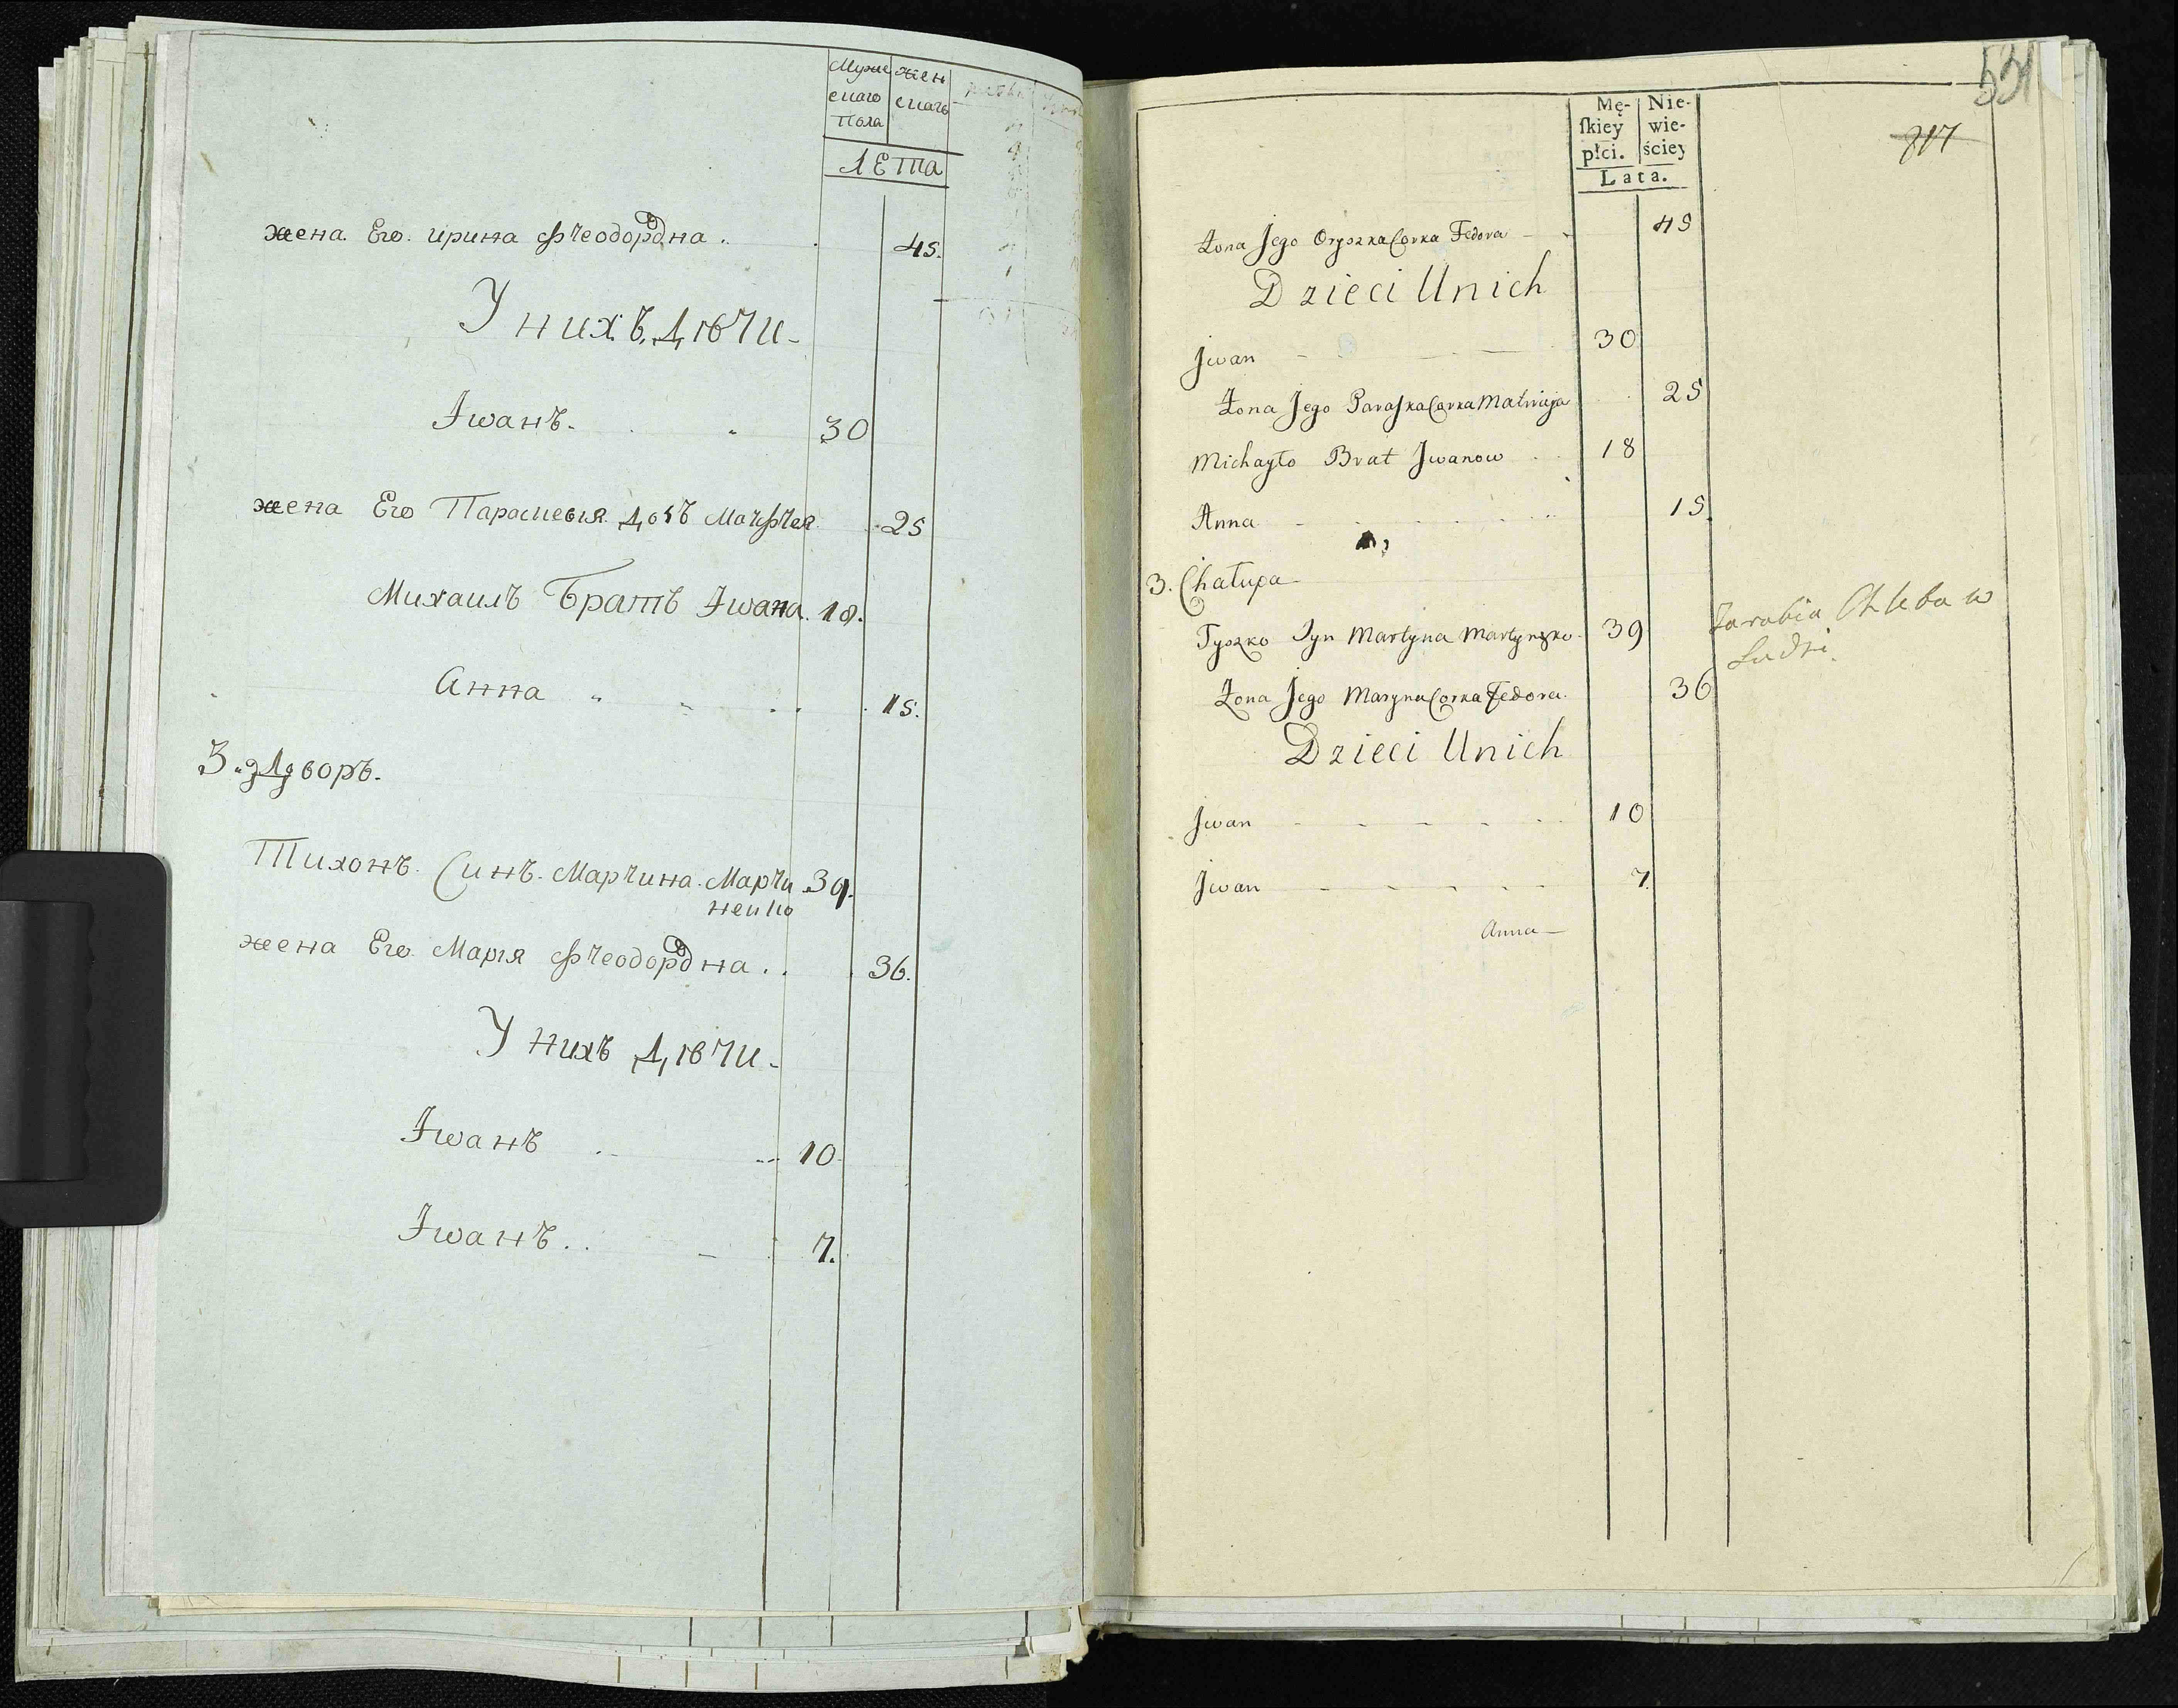 Муже жен
скаго скаго
Пола
ЛЕта
жена Его ирина Феодоровна 45.
У нихъ Дѣти
Иванъ 30
жена Его Параскевія Дочь Матфея 25
Михаилъ Братъ Ивана 18.
Анна 15.
3. Дворъ.
Тихонъ Синъ Мартина Марти 39.
ненко
жена Его Марія Феодоровна 36.
У нихъ Дѣти
Иванъ 10
Иванъ 7.
531
817
Mę- Nie-
ſkiey wie-
płci. ściey
Lata.
Żona Jego Oryszka Corka Fedora 45
Dzieci U nich
Jwan 30
Żona Jego Paraſka Corka Matwieja 25
Michayło Brat Jwanow 18
Anna 15
3. Chałupa
Tyszko Syn Martyna Martynęko 39 Zarabia Chleba w
Ludzi
Żona Jego Maryna Corka Fedora 36
Dzieci U nich
Jwan 10
Jwan 7
Anna